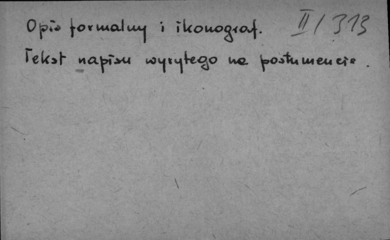 Opis formalny i ikonograf. II/313
Tekst napisu wyrytego na postumencie.